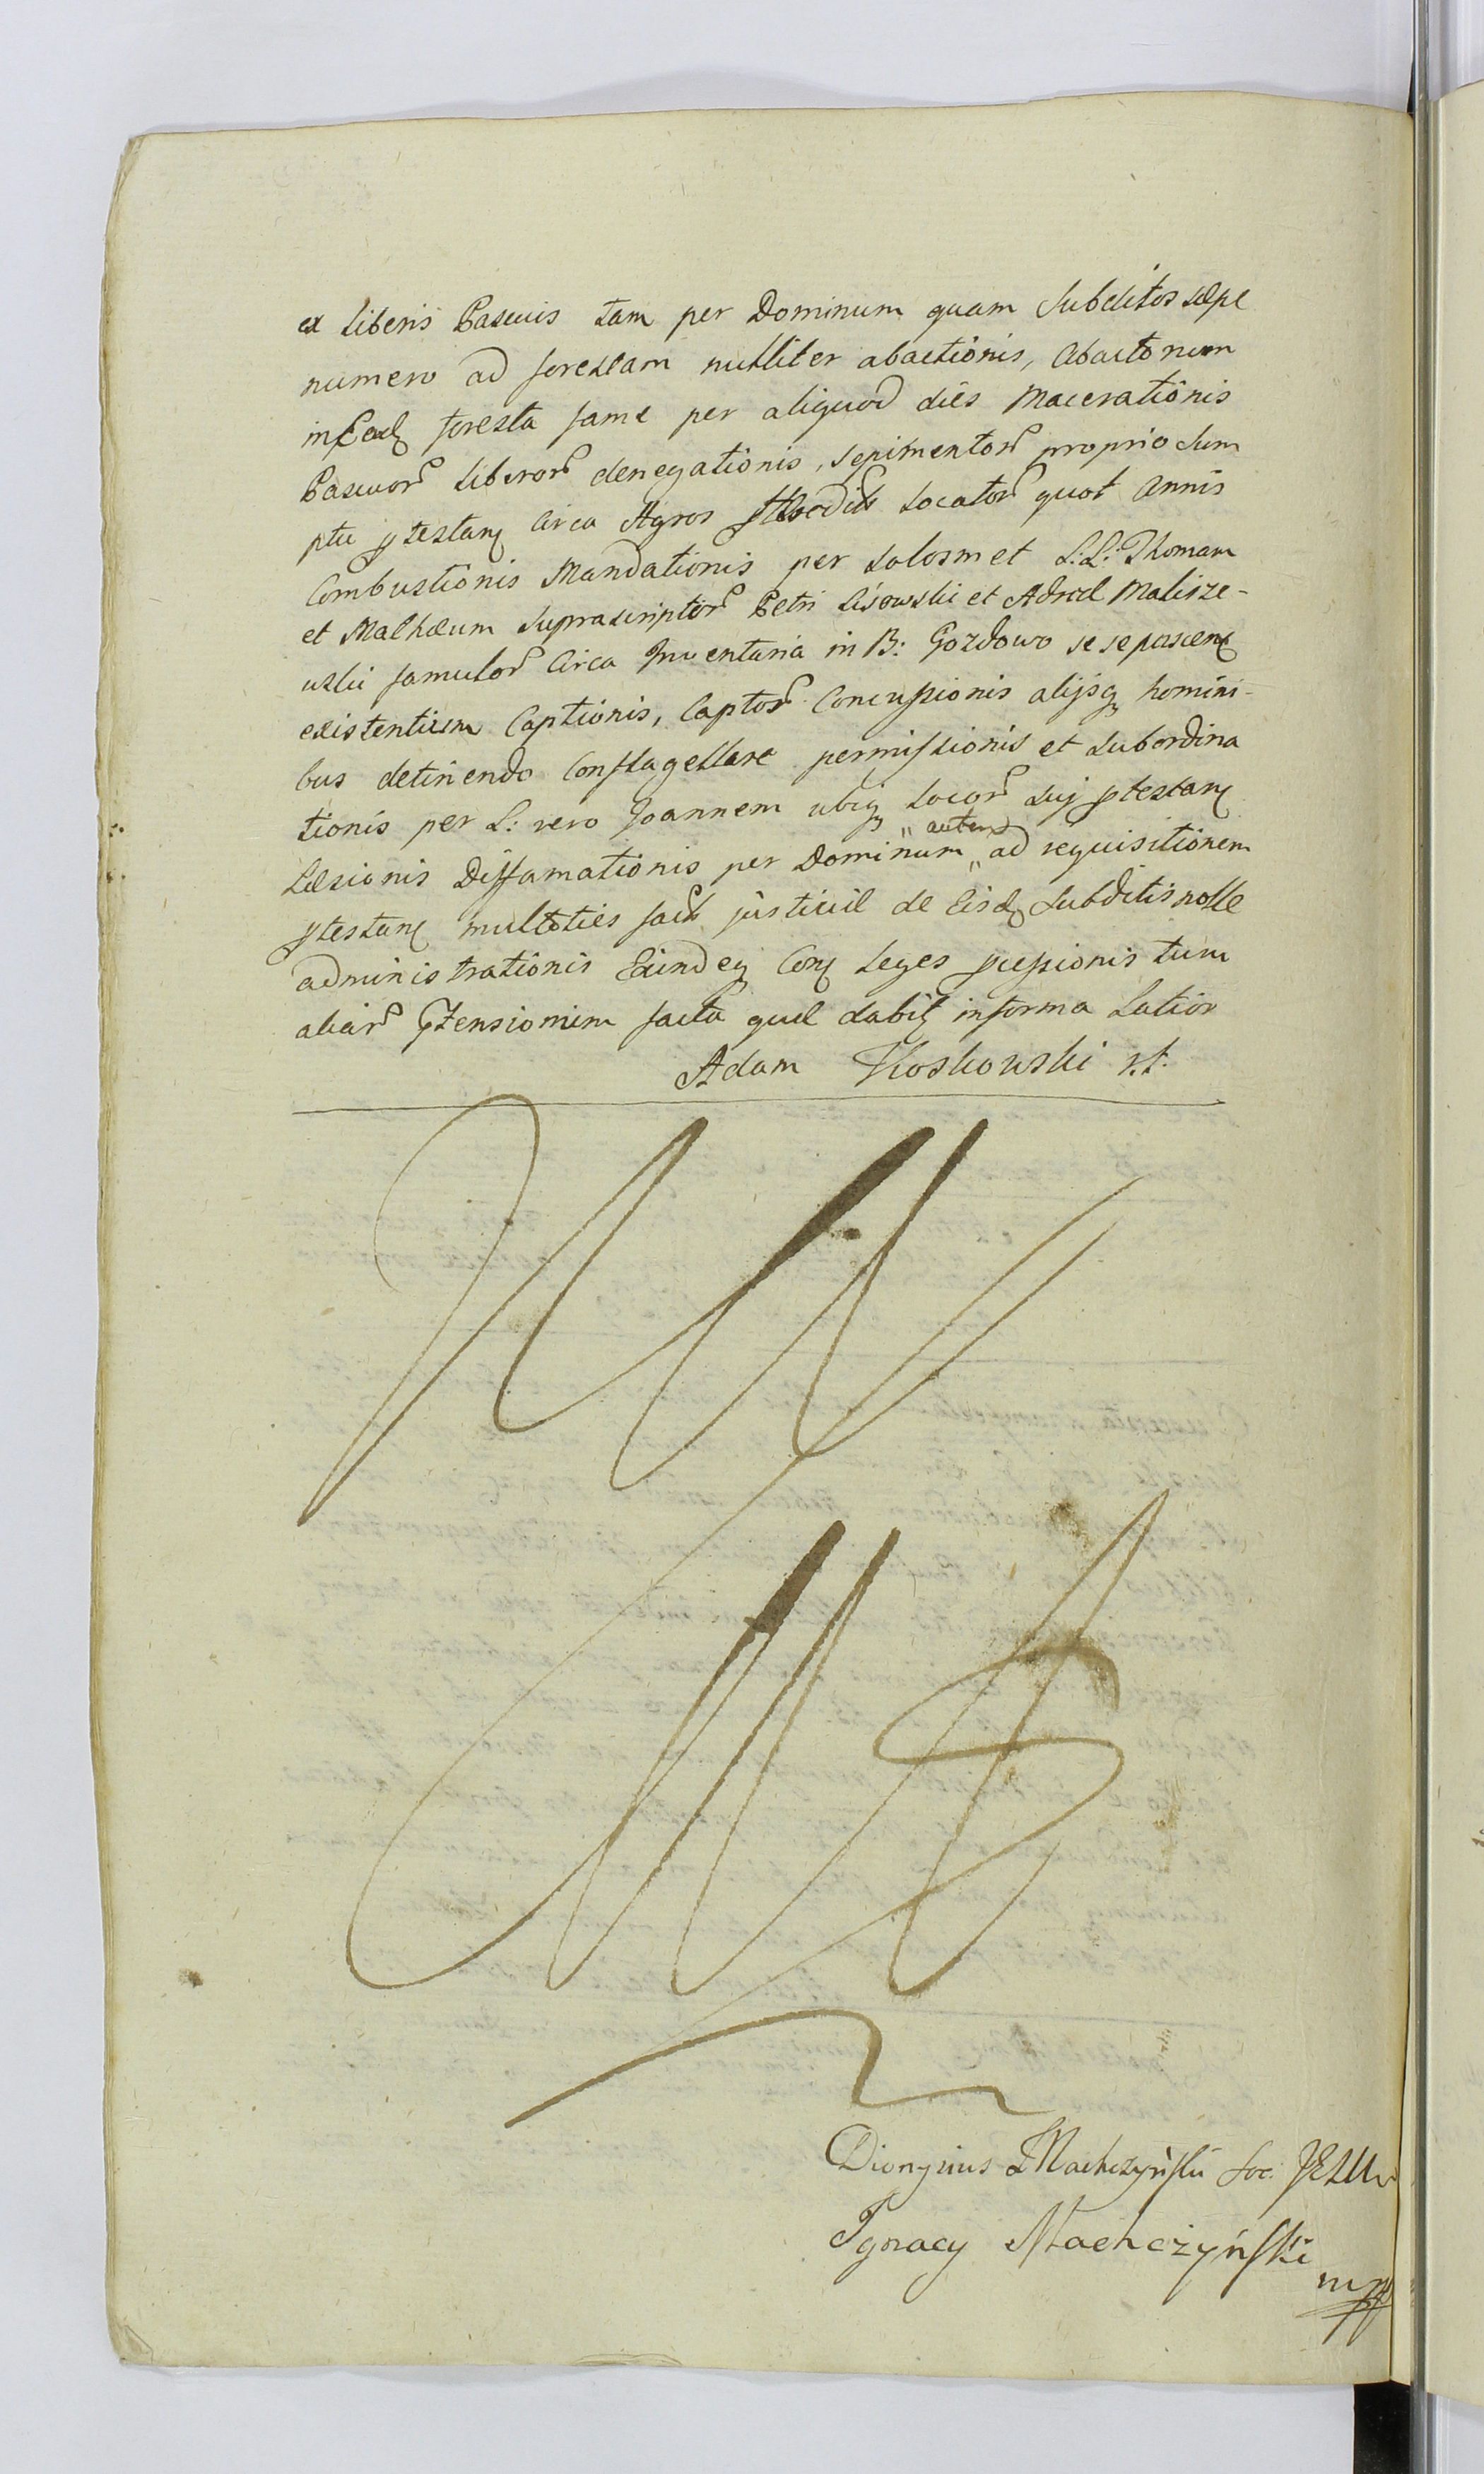 ex liberis Pascuis tam per Dominum quam Subditos sæpe
numero ad forestam nulliter abactionis, abactorum
in Ead foresta fame per aliquod dies Macerationis
Pascuor liberor denegationis, sepimentor proprio Sum
ptu ptestan Circa Agros locator quot Annis
Combustionis Mandationis per Solosmet L:L: Thomam
et Mathæum Suprascriptor Petri Lisowski et Adred Malisze-
wski famulor Circa Inventaria in B: Gozdowo se se pascen
existentium Captionis, Captor Concussionis alijsq homini-
bus detinendo Conflagellare permissionis et Subordina
tionis per L: vero Joannem ubiq locor Suj ptestan
Læsionis Diffamationis per Dominum " autem " ad requisitionem
ptestan multoties fact justitiæ de Eisd Subditis nolle
administrationis Eundeq Con Leges pcessionis tum
aliar ptensionum facta quæ dabit in forma Latior
Adam Koskowski v.t.
Dionysius Machczyński Soc: JESU
Ignacy Machczyński
mpp